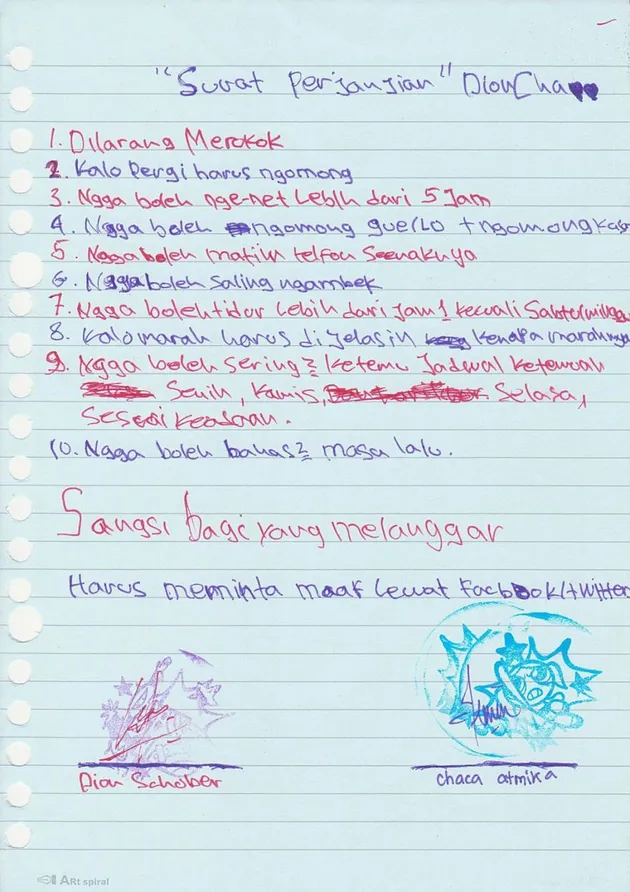 "Surat Perjanjian" DionCha
1. Dilarang Merokok
2. Kalo Pergi harus ngomong
3. Ngga boleh nge-net lebih dari 5 Jam
4. Ngga boleh ngomong gue/Lo + ngomong kasar
5. Ngga boleh matiin telfon Seenaknya
6. Ngga boleh saling ngambek
7. Ngga boleh tidur lebih dari jam 1 kecuali Sabtu/minggu
8. Kalo marah harus dijelasin kenapa marahnya
9. Ngga boleh Sering2 ketemu Jadwal ketemuan
Senin, Kamis, Selasa,
Sesuai keadaan.
10. Ngga boleh bahas2 masa lalu.
Sangsi bagi yang melanggar
Harus meminta maaf lewat facbook/twitter
Dion Schober
chaca atmika
ARt spiral